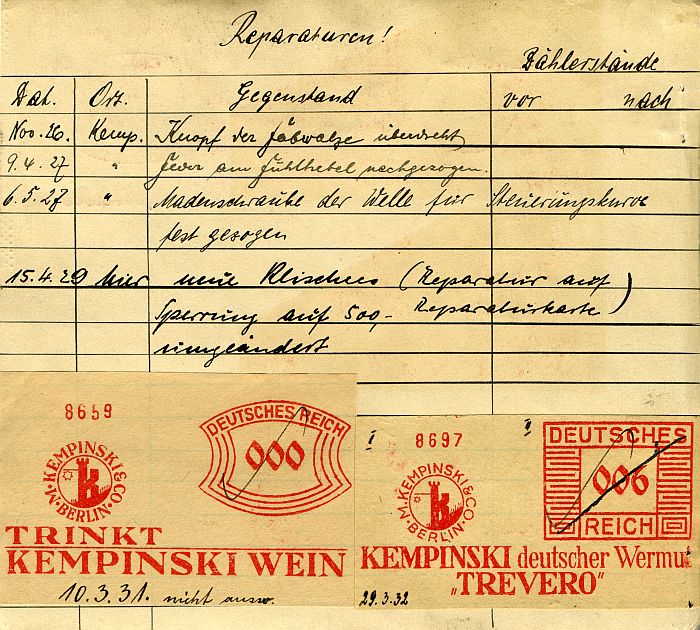 Reparaturen!
Zählerstände
Dat. Ort. Gegenstand vor nach
Nov. 26. Kemp. Knopf der Farbwalze überdreht
9.4.27 " Feder am Fühlhebel nachgezogen.
6.5.27 " Madenschraube der Welle für Steuerungskurve
fest gezogen
15.4.29 hier neue Klischees (Reparatur auf
Sperrung auf 500,- Reparaturkarte)
umgeändert
8659
DEUTSCHES REICH
000
M. KEMPINSKI & CO
BERLIN
TRINKT
KEMPINSKI WEIN
10.3.31. nicht ausw.
I 8697 II
DEUTSCHES
006
REICH
M. KEMPINSKI & CO
BERLIN
KEMPINSKI deutscher Wermut
"TREVERO"
29.3.32